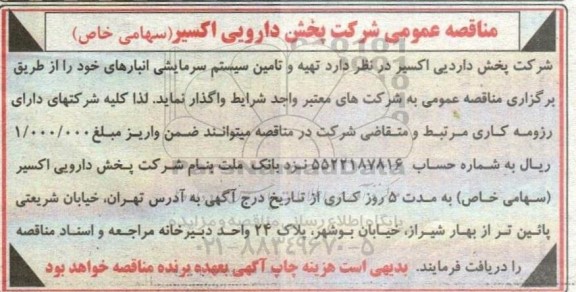 مناقصه عمومی شرکت پخش دارویی اکسیر(سهامی خاص)
شرکت پخش داردیی اکسیر در نظر دارد تهیه و تامین سیستم سرمایشی انبارهای خود را از طریق
برگزاری مناقصه عمومی به شرکت های معتبر واجد شرایط واگذار نماید. لذا کلیه شرکتهای دارای
رزومه کاری مرتبط و متقاضی شرکت در مناقصه میتوانند ضمن واریز مبلغ ۱/۰۰۰/۰۰۰
ریال به شماره حساب ۵۵۲۲۱۸۷۸۱۶ نزد بانک ملت بنام شرکت پخش دارویی اکسیر
(سهامی خاص) به مدت ۵ روز کاری از تاریخ درج آگهی به آدرس تهران، خیابان شریعتی
پائین تر از بهار شیراز، خیابان بوشهر، پلاک ۲۴ واحد دبیرخانه مراجعه و اسناد مناقصه
را دریافت فرمایند. بدیهی است هزینه چاپ آگهی بعهده برنده مناقصه خواهد بود
پایگاه اطلاع رسانی مناقصه و مزایده
۰۲۱-۸۸۳۴۹۶۷۰-۵